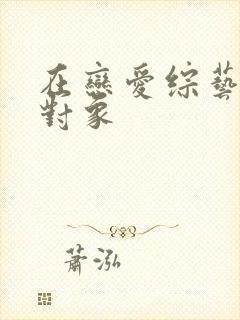 在戀愛綜藝
對象
蕭泓